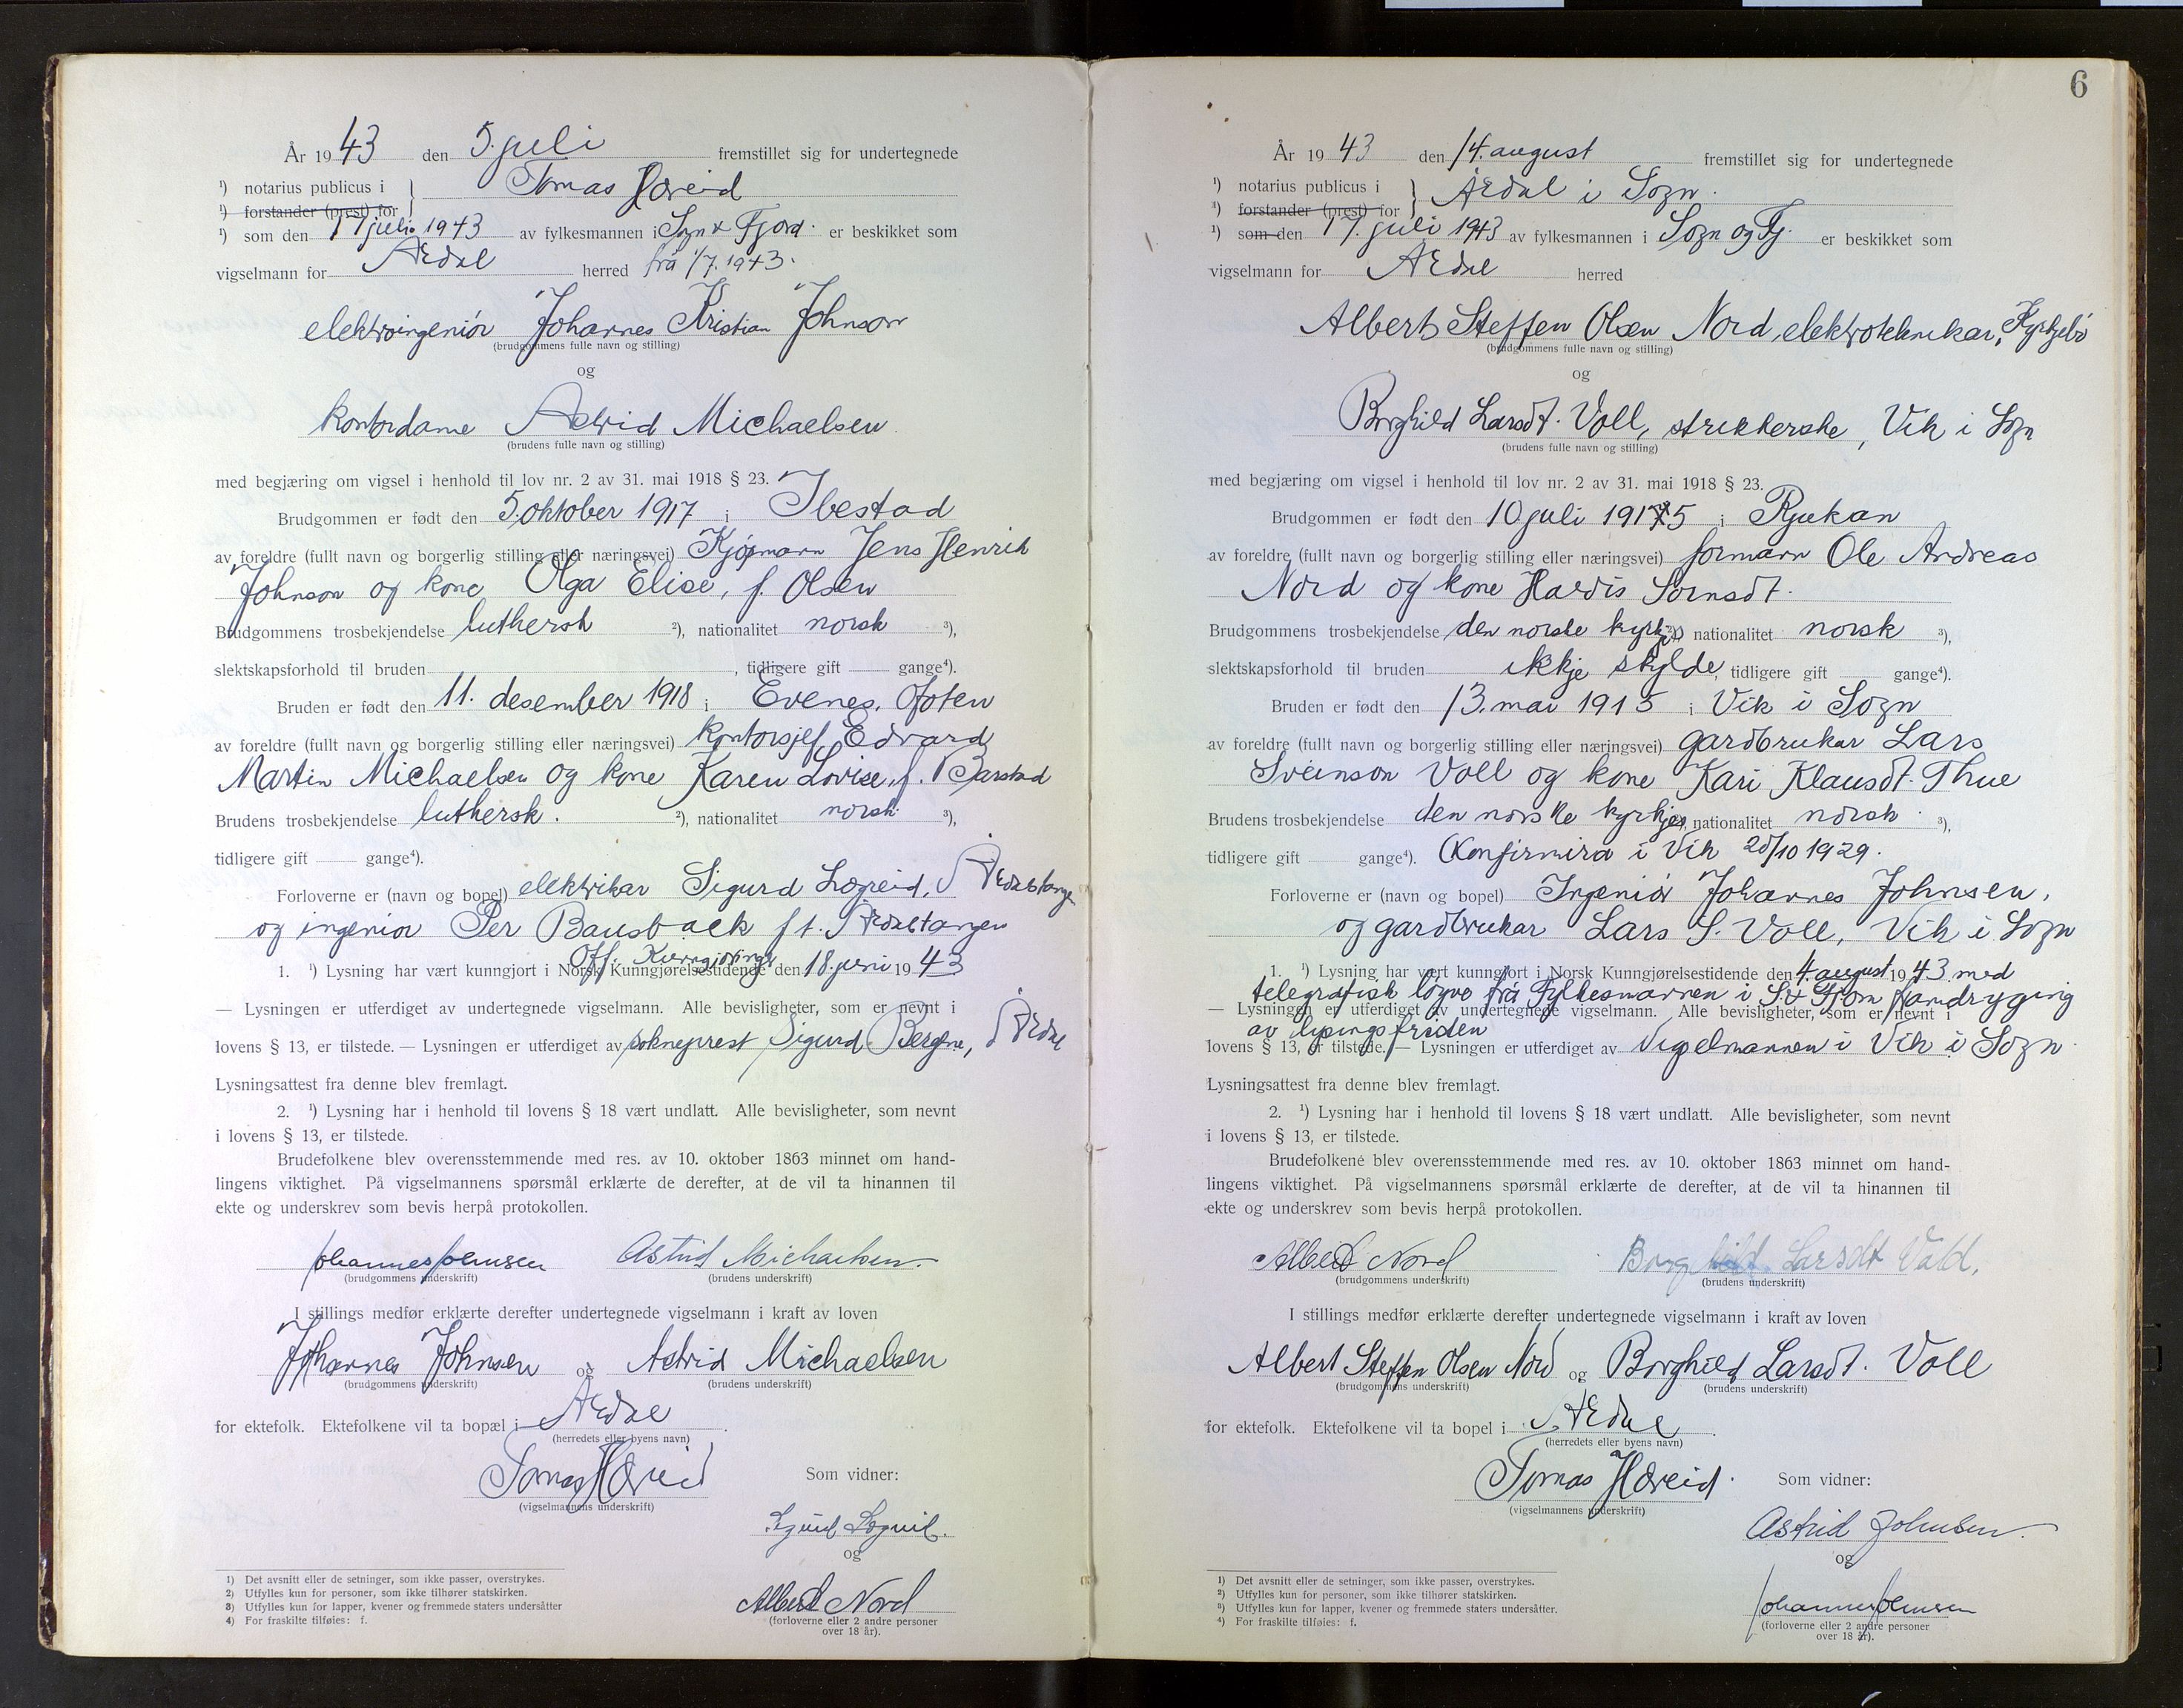 År 1943 den 5. juli fremstillet sig for undertegnede
¹) notarius publicus i } Tomas Hæreid
¹) forstander (prest) for
¹) som den 17 juli 1943 av fylkesmannen i Sogn & Fjord. er beskikket som
vigselmann for Årdal herred frå 1/7. 1943.
elektroingeniør Johannes Kristian Johnson
(brudgommens fulle navn og stilling)
og
kontordame Astrid Michaelsen
(brudens fulle navn og stilling)
med begjæring om vigsel i henhold til lov nr. 2 av 31. mai 1918 § 23.
Brudgommen er født den 5. oktober 1917 i Ibestad
av foreldre (fullt navn og borgerlig stilling eller næringsvei) Kjøpmann Jens Henrik
Johnson og kone Olga Elise, f. Olsen
Brudgommens trosbekjendelse luthersk ²), nationalitet norsk ³),
slektskapsforhold til bruden , tidligere gift gange⁴).
Bruden er født den 11. desember 1918 i Evenes, Ofoten
av foreldre (fullt navn og borgerlig stilling eller næringsvei) kontorsjef Edvard
Martin Michaelsen og kone Karen Lovise, f. Barstad
Brudens trosbekjendelse luthersk. ²), nationalitet norsk ³),
tidligere gift gange⁴).
Forloverne er (navn og bopel) elektrikar Sigurd Lægreid, Årdalstangen
og ingeniør Per Bausback f t. Årdalstangen
Off. Kunngjørings
1. ¹) Lysning har vært kunngjort i Norsk Kunngjørelsestidende den 18. juni 1943
— Lysningen er utferdiget av undertegnede vigselmann. Alle bevisligheter, som er nevnt i
lovens § 13, er tilstede. — Lysningen er utferdiget av sokneprest Sigurd Bergne, Årdal
Lysningsattest fra denne blev fremlagt.
2. ¹) Lysning har i henhold til lovens § 18 vært undlatt. Alle bevisligheter, som nevnt
i lovens § 13, er tilstede.
Brudefolkene blev overensstemmende med res. av 10. oktober 1863 minnet om hand-
lingens viktighet. På vigselmannens spørsmål erklærte de derefter, at de vil ta hinannen til
ekte og underskrev som bevis herpå protokollen.
Johannes Johnsen Astrid Michaelsen
(brudgommens underskrift) (brudens underskrift)
I stillings medfør erklærte derefter undertegnede vigselmann i kraft av loven
Johannes Johnsen og Astrid Michaelsen
(brudgommens underskrift) (brudens underskrift)
for ektefolk. Ektefolkene vil ta bopæl i Årdal .
(herredets eller byens navn)
Tomas Hæreid Som vidner:
(vigselmannens underskrift)
Sigurd Lægreid.
og
Albert Nord
(forloverne eller 2 andre personer
over 18 år).
1) Det avsnitt eller de setninger, som ikke passer, overstrykes.
2) Utfylles kun for personer, som ikke tilhører statskirken.
3) Utfylles kun for lapper, kvener og fremmede staters undersåtter
4) For fraskilte tilføies: f.
6
År 1943 den 14. august fremstillet sig for undertegnede
¹) notarius publicus i } Årdal i Sogn.
¹) forstander (prest) for
¹) som den 17. juli 1943 av fylkesmannen i Sogn og Fj. er beskikket som
vigselmann for Årdal herred
Albert Steffen Olsen Nord, elektroteknikar, Kyrkjebø
(brudgommens fulle navn og stilling)
og
Borghild Larsdt. Voll, strikkerske, Vik i Sogn
(brudens fulle navn og stilling)
med begjæring om vigsel i henhold til lov nr. 2 av 31. mai 1918 § 23.
Brudgommen er født den 10 juli 1915 i Rjukan
av foreldre (fullt navn og borgerlig stilling eller næringsvei) formann Ole Andreas
Nord og kone Hardis Sornsdt.
Brudgommens trosbekjendelse den norske kyrkje ²), nationalitet norsk ³),
slektskapsforhold til bruden ikkje skylde, tidligere gift gange⁴).
Bruden er født den 13. mai 1915 i Vik i Sogn
av foreldre (fullt navn og borgerlig stilling eller næringsvei) gardbrukar Lars
Sveinson Voll og kone Kari Klausdt. Thue
Brudens trosbekjendelse den norske kyrkje ²), nationalitet norsk ³),
tidligere gift gange⁴). Konfirmira i Vik 20/10 1929.
Forloverne er (navn og bopel) Ingeniør Johannes Johnsen,
og gardbrukar Lars S. Voll, Vik i Sogn
1. ¹) Lysning har vært kunngjort i Norsk Kunngjørelsestidende den 4. august 1943 med
telegrafisk løyve frå Fylkesmannen i S. & Fj om framdryging
— Lysningen er utferdiget av undertegnede vigselmann. Alle bevisligheter, som er nevnt i
av lysingsfristen
lovens § 13, er tilstede. — Lysningen er utferdiget av Vigselmannen i Vik i Sogn
Lysningsattest fra denne blev fremlagt.
2. ¹) Lysning har i henhold til lovens § 18 vært undlatt. Alle bevisligheter, som nevnt
i lovens § 13, er tilstede.
Brudefolkene blev overensstemmende med res. av 10. oktober 1863 minnet om hand-
lingens viktighet. På vigselmannens spørsmål erklærte de derefter, at de vil ta hinannen til
ekte og underskrev som bevis herpå protokollen.
Albert Nord Borghild Larsdt Vold.
(brudgommens underskrift) (brudens underskrift)
I stillings medfør erklærte derefter undertegnede vigselmann i kraft av loven
Albert Steffen Olsen Nord og Borghild Larsdt. Voll
(brudgommens underskrift) (brudens underskrift)
for ektefolk. Ektefolkene vil ta bopel i Årdal .
(herredets eller byens navn)
Tomas Hæreid. Som vidner:
(vigselmannens underskrift)
Astrid Johnsen.
og
Johannes Johnsen
(forloverne eller 2 andre personer
over 18 år).
¹) Det avsnitt eller de setninger, som ikke passer, overstrykes.
²) Utfylles kun for personer, som ikke tilhører statskirken.
³) Utfylles kun for lapper, kvener og fremmede staters undersåtter.
⁴) For fraskilte tilføies: f.